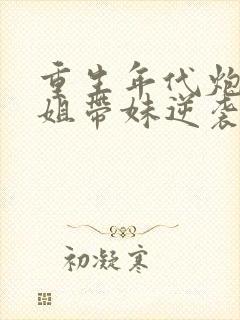 重生年代炮
姐带妹逆袭
初凝寒